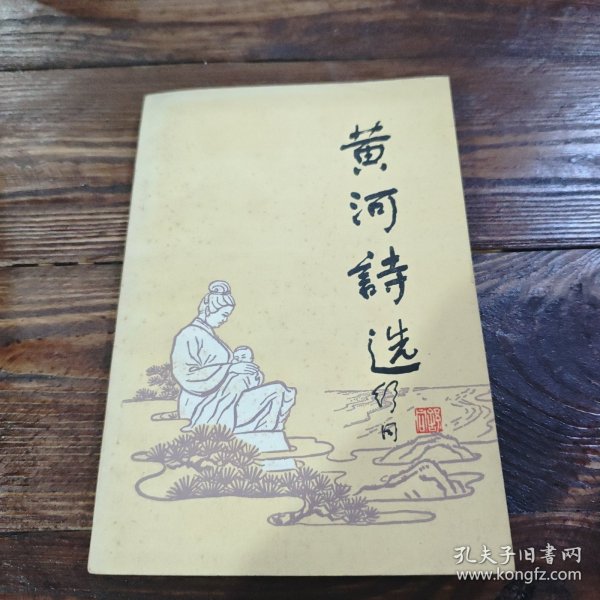 黄河詩选
舒同
孔夫子旧书网
www.kongfz.com